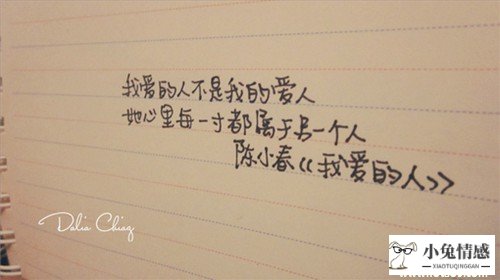 我爱的人不是我的爱人
她心里每一寸都属于另一个人
陈小春《我爱的人》
Dalia Chiag
小兔情感
XIAOTUQINGGAN